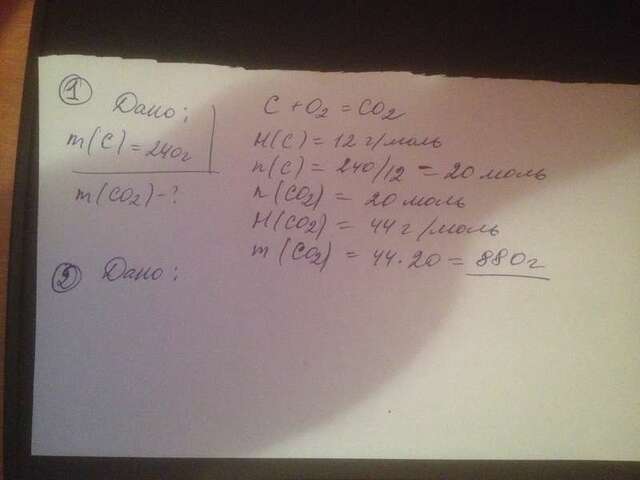 ① Дано:
m(C) = 240г
m(CO2) - ?
C + O2 = CO2
M(C) = 12 г/моль
n(C) = 240/12 = 20 моль
n(CO2) = 20 моль
M(CO2) = 44 г/моль
m(CO2) = 44 · 20 = 880г
② Дано: